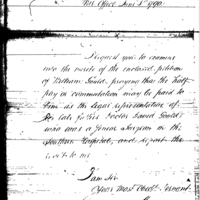 War Office June 1st 1790.
I request you to examine
into the merits of the enclosed petition
of William Gould, praying that the half
pay or commutation may be paid to
him as the legal representative of
his late Doctor David Gould
who was a Senior Surgeon in the
Southern Hospital, and report the
to me
I am Sir
Your most obedt. Servant